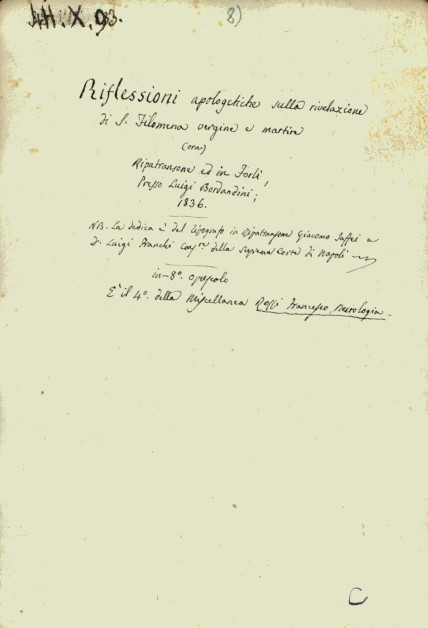 44.X.93.
8)
Riflessioni apologetiche sulla rivelazione
di S. Filomena vergine e martire
(orn.)
Ripatransone ed in Forlì
Presso Luigi Bordandini;
1836.
NB. La dedica è del Tipografo in Ripatransone Giacomo Jaffei a
Dn. Luigi Franchi Consre. della Suprema Corte di Napoli
in-8º. opuscolo
E' il 4º. della Miscellanea Rossi Francesco,
C